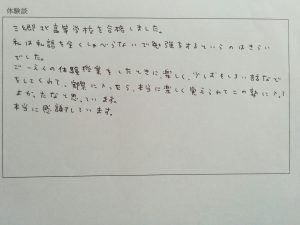 体験談
三郷北高等学校を合格しました。
私は私語を全くしゃべらないで勉強するというのはきらい
でした。
ごーえんの体験授業をしたときに、楽しく、少しおもしろい話など
をしてくれて、実際に入ったら、本当に楽しく覚えられてこの塾に入って
よかったなと思っています。
本当に感謝しています。